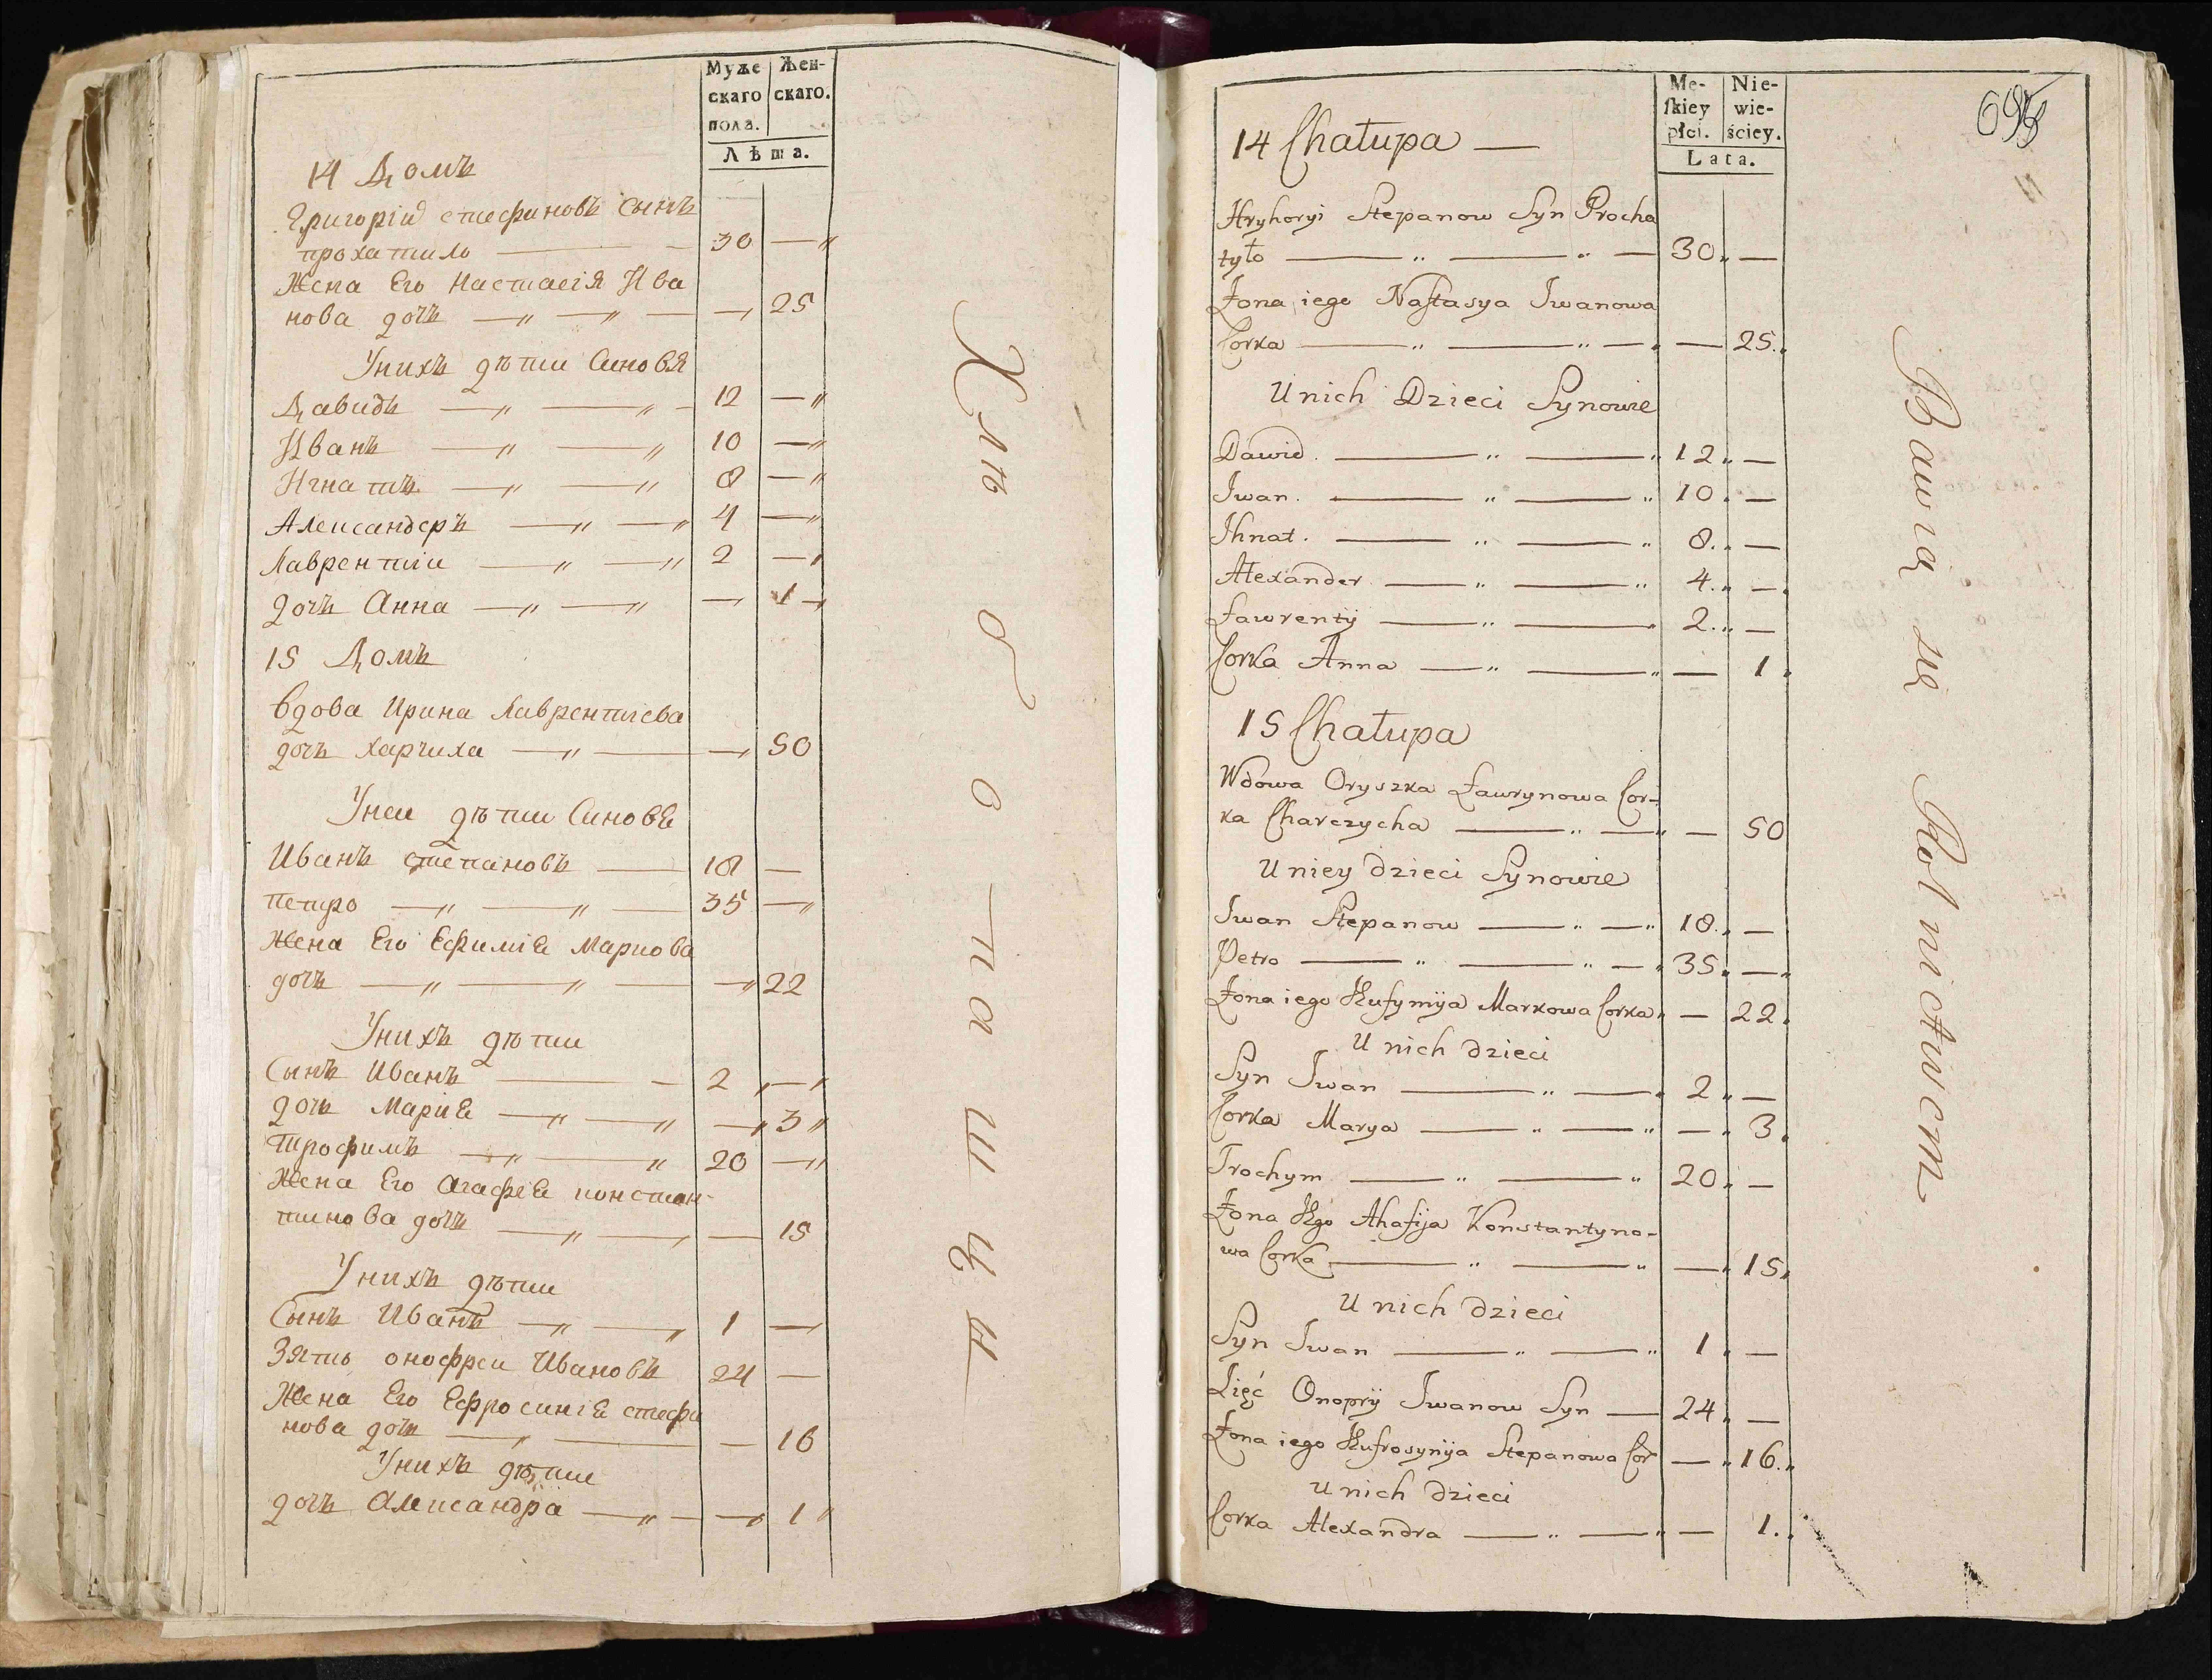 Муже
скаго
пола.
Жен-
скаго.
Лѣта.
14 Домъ
Григорій стефановъ сынъ
прохатило 30 —
Жена Его Настасія Ива
нова дочь — 25
Унихъ дѣти Синовя
Давидъ 12 —
Иванъ 10 —
Игнатъ 8 —
Александеръ 4 —
Лаврентіи 2 —
дочь Анна — 1
15 Домъ
вдова Ирина Лаврентіева
дочь харчиха — 50
Унеи дѣти Синовѣ
Иванъ степановъ 18 —
петро 35 —
Жена Его Ефиміѣ Маркова
дочь — 22
Унихъ дѣти
Сынъ Иванъ 2 —
дочь Маріѣ — 3
Трофимъ 20 —
Жена Его Агафіѣ констан-
тинова дочь — 15
Унихъ дѣти
Сынъ Иванъ 1 —
Зять онофреи Ивановъ 24 —
Жена Его Ефросиніѣ стефа
нова дочь — 16
Унихъ дѣти
дочь Александра — 1
Хлѣбопашци
Mę-
skiey
płci.
Nie-
wie-
ściey.
Lata.
14 Chałupa —
Hryhoryi Stepanow Syn Procha
tyło 30 —
Żona iego Nastasya Iwanowa
Corka — 25
U nich Dzieci Synowie
Dawid. 12 —
Iwan. 10 —
Ihnat. 8 —
Alexander 4 —
Ławrentÿ 2 —
Corka Anna — 1
15 Chałupa
Wdowa Oryszka Ławrynowa Cor-
ka Charczycha — 50
U niey dzieci Synowie
Iwan Stepanow 18 —
Petro 35 —
Żona iego Eufymÿa Markowa Corka — 22
U nich dzieci
Syn Iwan 2 —
Corka Marya — 3
Trochym 20 —
Żona Ego Ahafija Konstantyno-
wa Corka — 15
U nich dzieci
Syn Iwan 1 —
Zięć Onoprÿ Iwanow Syn 24 —
Żona iego Eufrosynÿa Stepanowa Cor — 16
U nich dzieci
Corka Alexandra — 1
Bawią się Rolnictwem